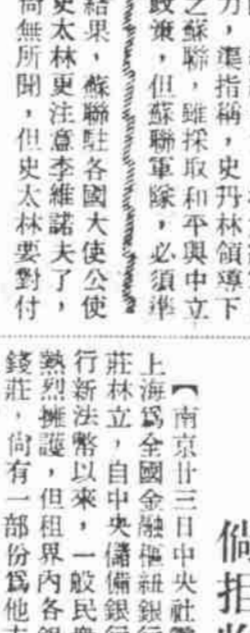 力，準指稱，史丹林領導下
之蘇聯，雖採取和平與中立
政策，但蘇聯軍隊，必須準
結果，蘇聯駐各國大使公使
史太林更注意李維諾夫了，
尚無所聞，但史太林要對付
倘拒收
【南京廿三日中央社電
上海爲全國金融樞紐銀行
莊林立，自中央儲備銀行
行新法幣以來，一般民衆
熱烈擁護，但租界內各銀
錢莊，尙有一部份爲他